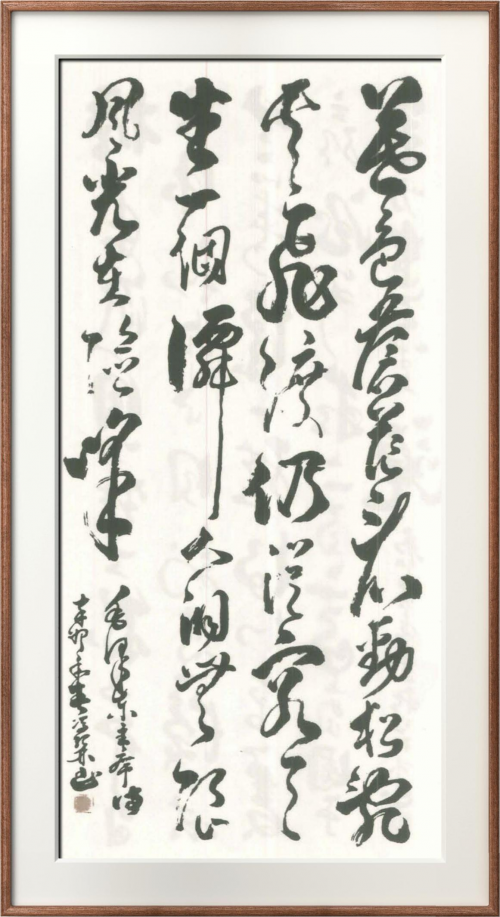 暮色蒼茫看勁松亂
雲飛渡仍從容天
生一個僊人洞無限
風光在險峰
毛澤東主席詩
辛卯年春